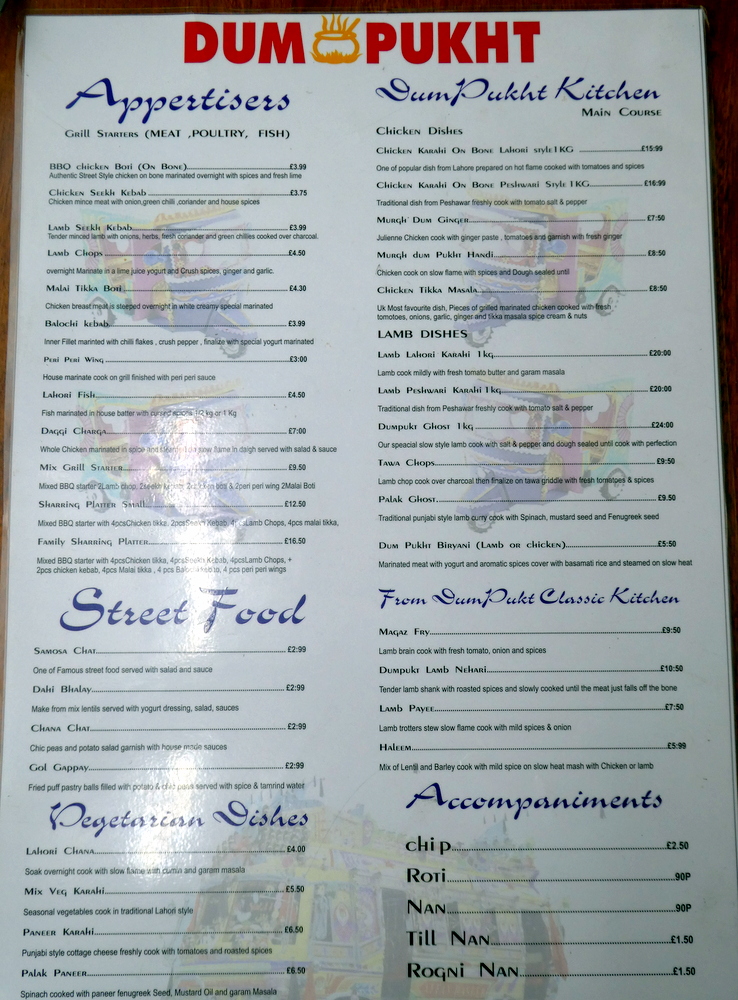 DUM PUKHT
Appertisers
Grill Starters (MEAT ,POULTRY, FISH)
BBQ chicken Boti (On Bone)....£3.99
Authentic Street Style chicken on bone marinated overnight with spices and fresh lime
Chicken Seekh Kebab....£3.75
Chicken mince meat with onion,green chilli ,coriander and house spices
Lamb Seekh Kebab....£3.99
Tender minced lamb with onions, herbs, fresh coriander and green chillies cooked over charcoal.
Lamb Chops....£4.50
overnight Marinate in a lime juice yogurt and Crush spices, ginger and garlic.
Malai Tikka Boti....£4.30
Chicken breast meat is steeped overnight in white creamy special marinated
Balochi kebab....£3.99
Inner Fillet marinted with chilli flakes , crush pepper , finalize with special yogurt marinated
Peri Peri Wing....£3:00
House marinate cook on grill finished with peri peri sauce
Lahori Fish....£4.50
Fish marinated in house batter with spices 1/2 kg or 1 Kg
Daggi Charga....£7:00
Whole Chicken marinated in spice and flame in daigh served with salad & sauce
Mix Grill Starter....£9.50
Mixed BBQ starter 2Lamb chop, 2seekh kebab, 2chicken boti & 2peri peri wing 2Malai Boti
Sharring Platter Small....£12.50
Mixed BBQ starter with 4pcsChicken tikke, 2pcsSeekh Kebab, 4pcsLamb Chops, 4pcs malai tikka,
Family Sharring Platter....£16.50
Mixed BBQ starter with 4pcsChicken tikka, 4pcsSeekh Kebab, 4pcsLamb Chops, +
2pcs chicken kebab, 4pcs Malai tikka , 4 pcs kebab, 4 pcs peri peri wings
Street Food
Samosa Chat....£2:99
One of Famous street food served with salad and sauce
Dahi Bhalay....£2:99
Make from mix lentils served with yogurt dressing, salad, sauces
Chana Chat....£2:99
Chic peas and potato salad garnish with house made sauces
Gol Gappay....£2:99
Fried puff pastry balls filled with potato & chic peas served with spice & tamrind water
Vegetarian Dishes
Lahori Chana....£4.00
Soak overnight cook with slow flame with cumin and garam masala
Mix Veg Karahi....£5.50
Seasonal vegetables cook in traditional Lahori style
Paneer Karahi....£6.50
Punjabi style cottage cheese freshly cook with tomatoes and roasted spices
Palak Paneer....£6.50
Spinach cooked with paneer fenugreek Seed, Mustard Oil and garam Masala
DumPukht Kitchen
Main Course
Chicken Dishes
Chicken Karahi On Bone Lahori style 1 KG ....£15:99
One of popular dish from Lahore prepared on hot flame cooked with tomatoes and spices
Chicken Karahi On Bone Peshwari Style 1 KG....£16:99
Traditional dish from Peshawar freshly cook with tomato salt & pepper
Murgh Dum Ginger....£7:50
Julienne Chicken with ginger paste , tomatoes and garnish with fresh ginger
Murgh dum Pukht Handi....£8:50
Chicken cook on slow flame with spices and Dough sealed until
Chicken Tikka Masala....£8:50
Uk Most favourite dish, Pieces of grilled marinated chicken cooked with fresh
tomatoes, onions, garlic, ginger and tikka masala spice cream & nuts
LAMB DISHES
Lamb Lahori Karahi 1 kg....£20:00
Lamb cook mildly with fresh tomato butter and garam masala
Lamb Peshwari Karahi 1 kg....£20:00
Traditional dish from Peshawar freshly cook with tomato salt & pepper
Dumpukt Ghost 1 kg....£24:00
Our speacial slow style lamb cook with salt & pepper and dough sealed until cook with perfection
Tawa Chops....£9:50
Lamb chop cook over charcoal then finalize on tawa griddle with fresh tomatoes & spices
Palak Ghost....£9.50
Traditional punjabi style lamb curry cook with Spinach, mustard seed and Fenugreek seed
Dum Pukht Biryani (Lamb or chicken)....£5:50
Marinated meat with yogurt and aromatic spices cover with basamati rice and steamed on slow heat
From DumPukt Classic Kitchen
Magaz Fry....£9:50
Lamb brain cook with fresh tomato, onion and spices
Dumpukt Lamb Nehari....£10:50
Tender lamb shank with roasted spices and slowly cooked until the meat just falls off the bone
Lamb Payee....£7:50
Lamb trotters stew slow flame cook with mild spices & onion
Haleem....£5:99
Mix of Lentil and Barley cook with mild spice on slow heat mash with Chicken or lamb
Accompaniments
chip....£2.50
Roti....90P
Nan....90P
Till Nan....£1.50
Rogni Nan....£1.50